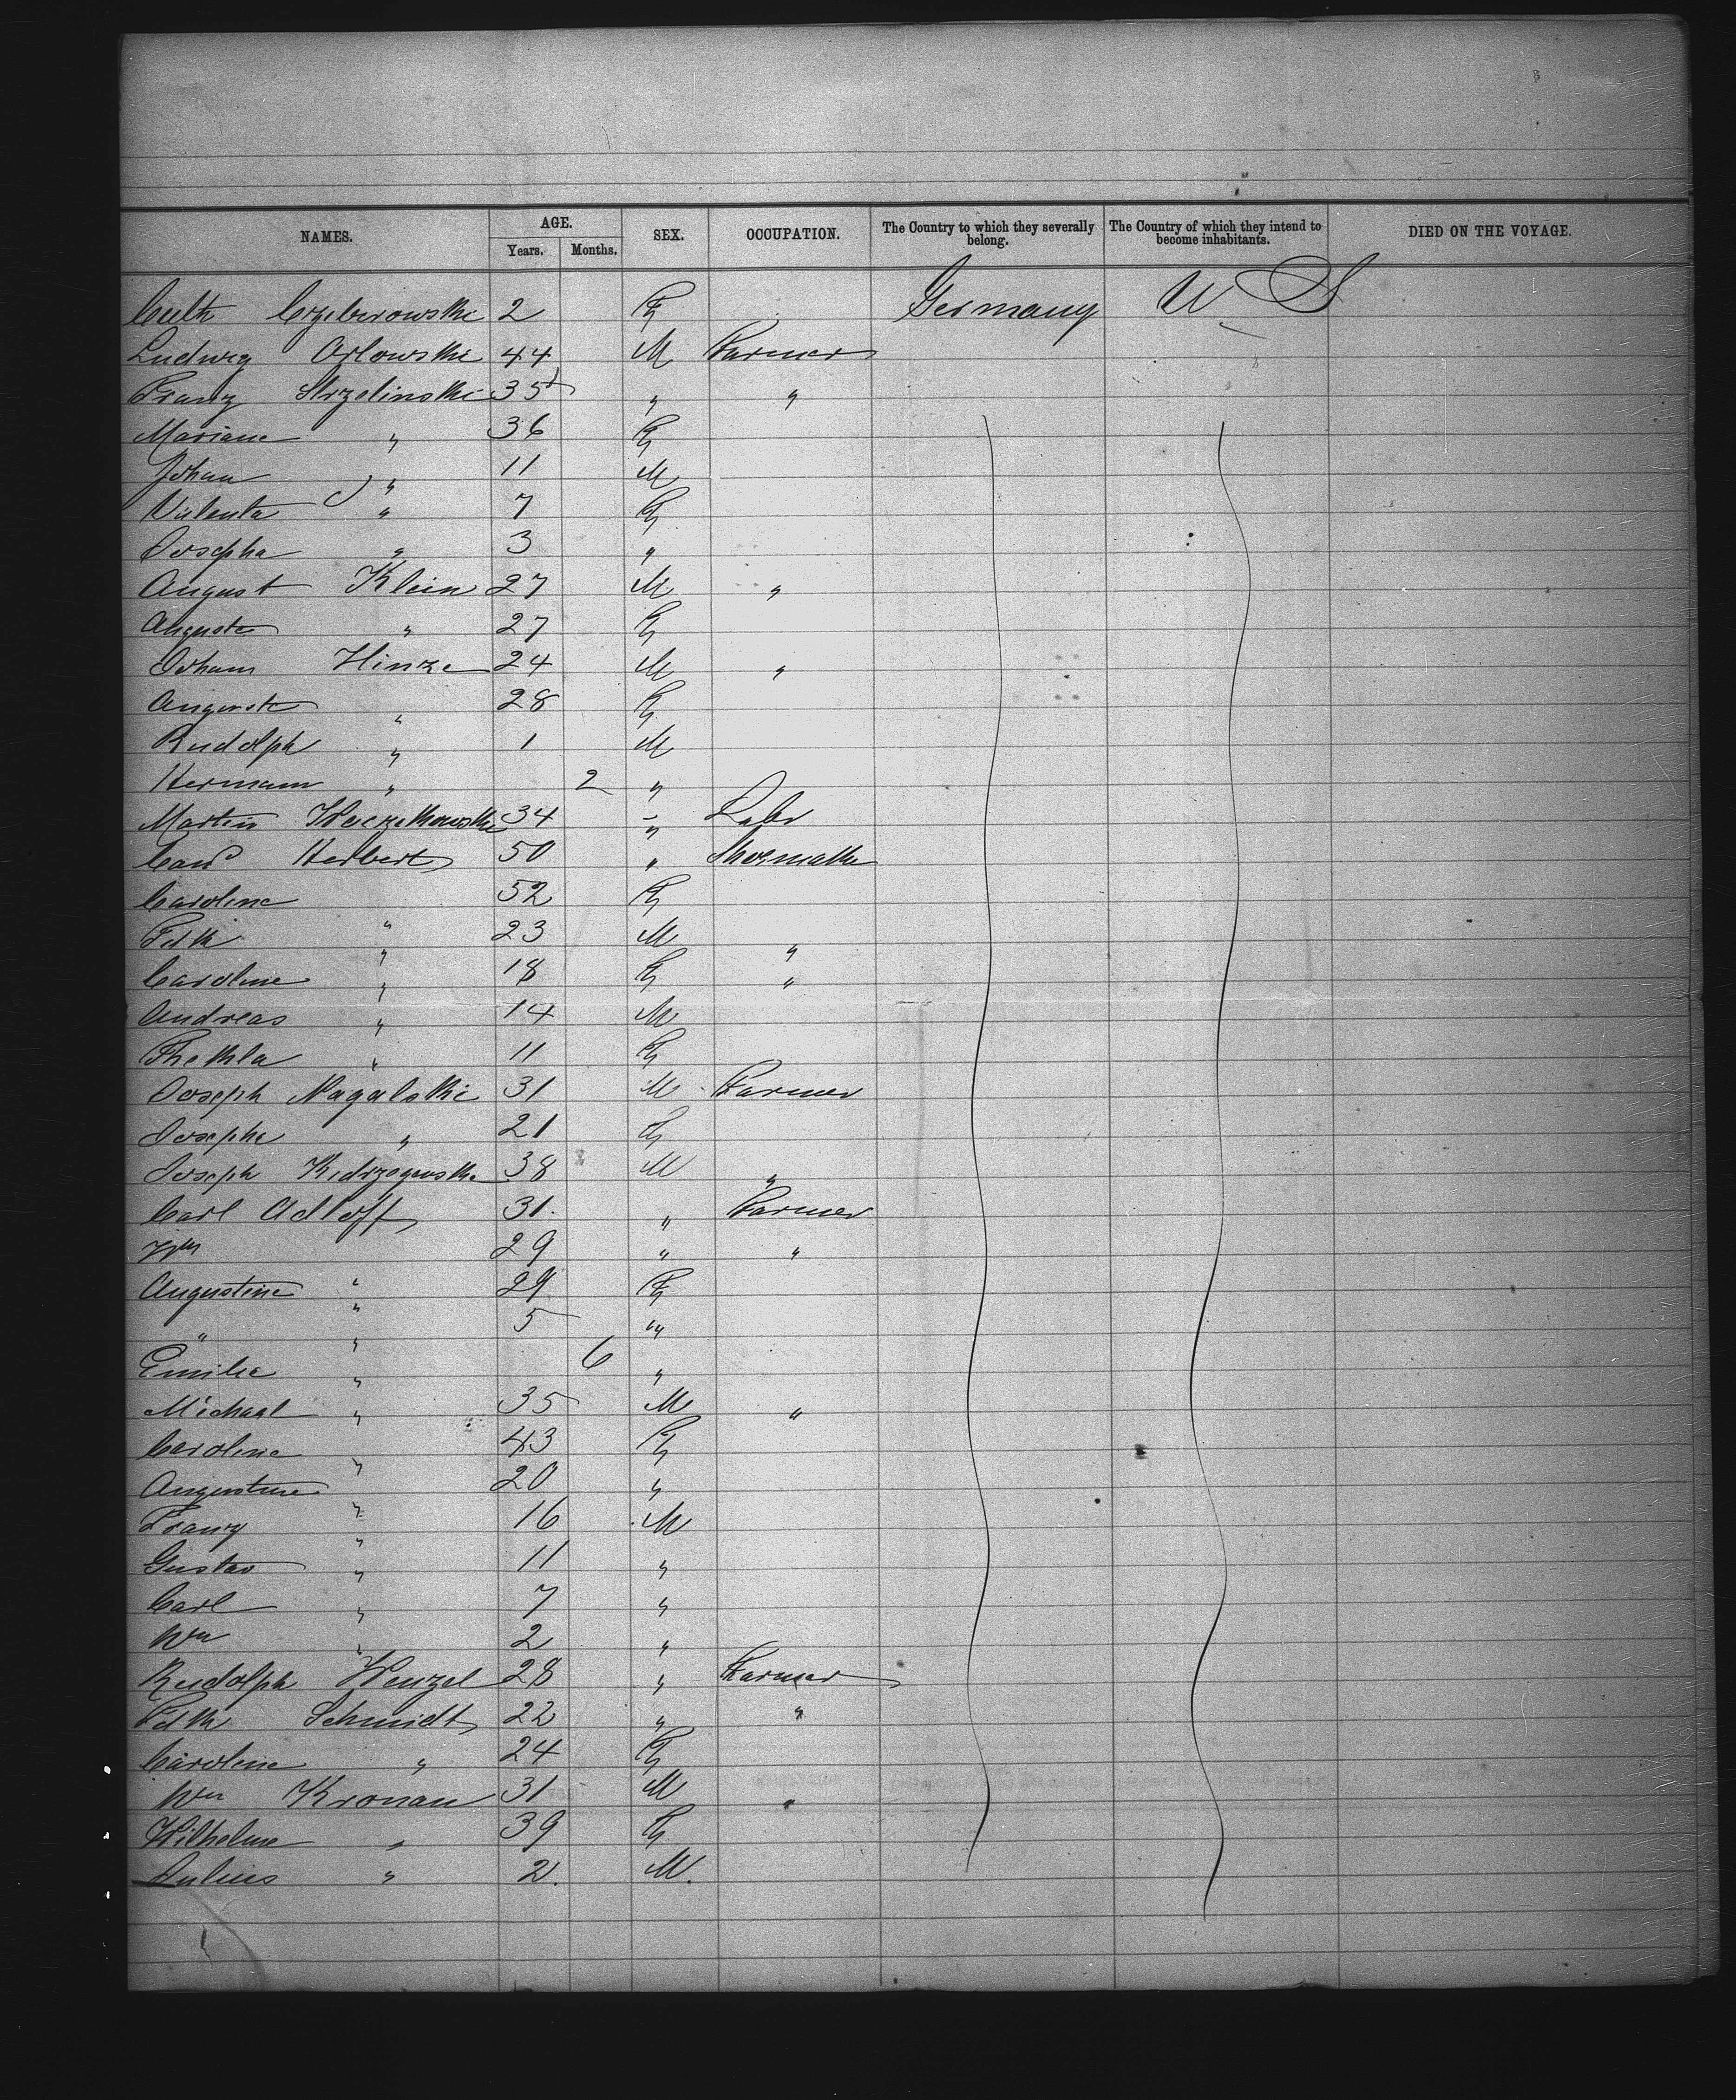 NAMES. AGE. SEX. OCCUPATION. The Country to which they severally belong. The Country of which they intend to become inhabitants. DIED ON THE VOYAGE.
Years. Months.
2 F Germany U S
Ludwig Orlowski 44 M Farmer
Franz Strzelinski 35 " "
Mariane " 36 F
Johan " 11 M
" 7 F
Josepha " 3 "
August Klein 27 M "
Auguste " 27 F
Johann Hinze 24 M "
Auguste " 28 F
Rudolph " 1 M
Hermann " 2 "
Martin 34 " Labr
Herbert 50 " Shoemaker
Caroline " 52 F
Fdk " 23 M "
Caroline " 18 F "
Andreas " 14 M
Thekla " 11 F
Joseph Nagalski 31 M Farmer
Josepha " 21 F
Joseph 38 M "
Carl Adloff 31 " Farmer
Wm " 29 " "
Augustine " 29 F
" " 5 "
Emilie " 6 "
Michael " 35 M "
Caroline " 43 F
Augustine " 20 "
Franz " 16 M
Gustav " 11 "
Carl " 7 "
Wm " 2 "
Rudolph Wenzel 28 " Farmer
Fdk Schmidt 22 " "
Caroline " 24 F
Wm Kronau 31 M "
Wilhelmine " 39 F
Julius " 2 M